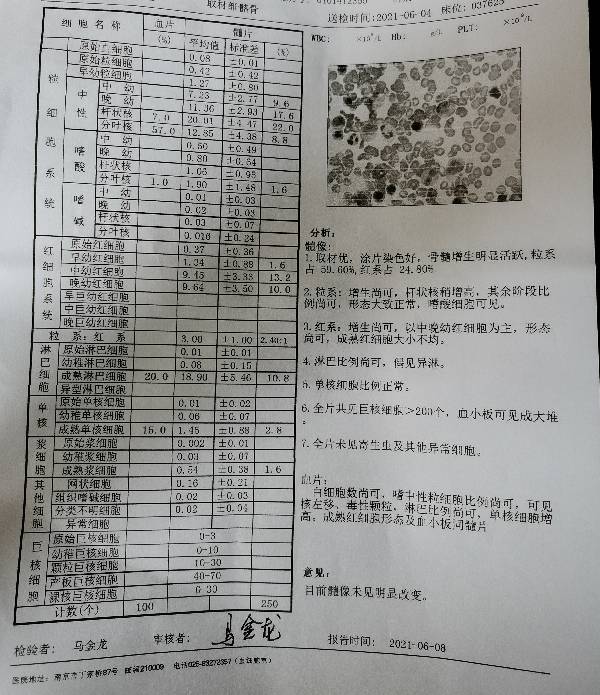 取材细髂骨
送检时间:2021-06-04 床位:037625
WBC: ×10⁹/L Hb: g/L PLT: ×10⁹/L
细 胞 名 称 血片 髓片
(%) 平均值 标准差 (%)
粒 细 胞 系 统
原始血细胞 0.08 ±0.01
原始粒细胞 0.42 ±0.42
早幼粒细胞 1.27 ±0.80
中性 中 幼 7.23 ±2.77 9.6
晚 幼 11.36 ±2.93 17.6
杆状核 7.0 20.01 ±4.47 22.0
分叶核 57.0 12.85 ±4.38 8.8
嗜酸 中 幼 0.50 ±0.49
晚 幼 0.80 ±0.64
杆状核 1.06 ±0.95
分叶核 1.0 1.90 ±1.48 1.6
嗜碱 中 幼 0.01 ±0.03
晚 幼 0.02 ±0.03
杆状核 0.03 ±0.07
分叶核 0.016 ±0.24
红 细 胞 系 统
原始红细胞 0.37 ±0.36
早幼红细胞 1.34 ±0.88 1.6
中幼红细胞 9.45 ±3.33 13.2
晚幼红细胞 9.64 ±3.50 10.0
早巨幼红细胞
中巨幼红细胞
晚巨幼红细胞
粒 系:红 系 3.00 ±1.00 2.40:1
淋巴细胞
原始淋巴细胞 0.01 ±0.01
幼稚淋巴细胞 0.08 ±0.15
成熟淋巴细胞 20.0 18.90 ±5.46 10.8
异型淋巴细胞
单核
原始单核细胞 0.01 ±0.02
幼稚单核细胞 0.06 ±0.07
成熟单核细胞 15.0 1.45 ±0.88 2.8
浆细胞
原始浆细胞 0.002 ±0.01
幼稚浆细胞 0.03 ±0.07
成熟浆细胞 0.54 ±0.38 1.6
其他细胞
网状细胞 0.16 ±0.21
组织嗜碱细胞 0.02 ±0.03
分类不明细胞 0.02 ±0.04
异常细胞
巨核细胞
原始巨核细胞 0-3
幼稚巨核细胞 0-10
颗粒巨核细胞 10-30
产板巨核细胞 40-70
裸核巨核细胞 0-30
计数(个) 100 250
分析:
髓像:
1.取材优，涂片染色好，骨髓增生明显活跃,粒系
占 59.60%,红系占 24.80%
2.粒系：增生尚可，杆状核稍增高，其余阶段比
例尚可，形态大致正常，嗜酸细胞可见。
3.红系：增生尚可，以中晚幼红细胞为主，形态
尚可，成熟红细胞大小不均。
4.淋巴比例尚可，偶见异淋。
5.单核细胞比例正常。
6.全片共见巨核细胞>200个，血小板可见成大堆
。
7.全片未见寄生虫及其他异常细胞。
血片:
白细胞数尚可，嗜中性粒细胞比例尚可，可见
核左移、毒性颗粒，淋巴比例尚可，单核细胞增
高；成熟红细胞形态及血小板同髓片
意见:
目前髓像未见明显改变。
检验者: 马金龙 审核者: 马金龙 报告时间: 2021-06-08
医院地址: 南京市丁家桥87号 邮编210009 电话025-83272357